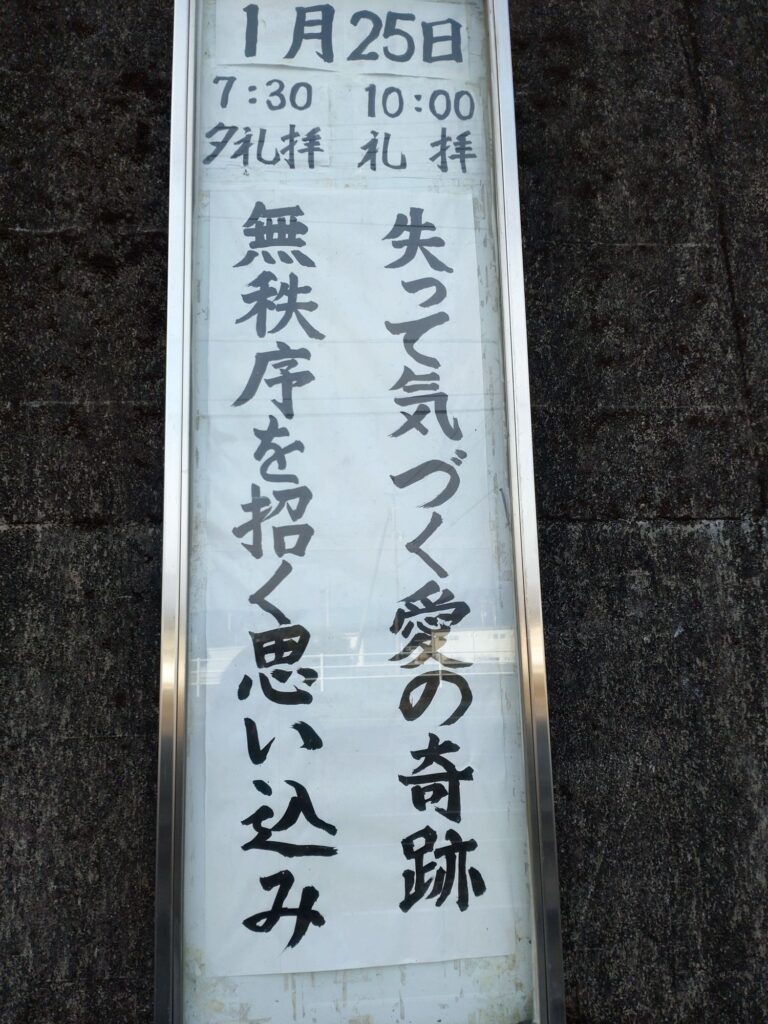 1月25日
10:00
礼拝
7:30
夕礼拝
失って気づく愛の奇跡
無秩序を招く思い込み